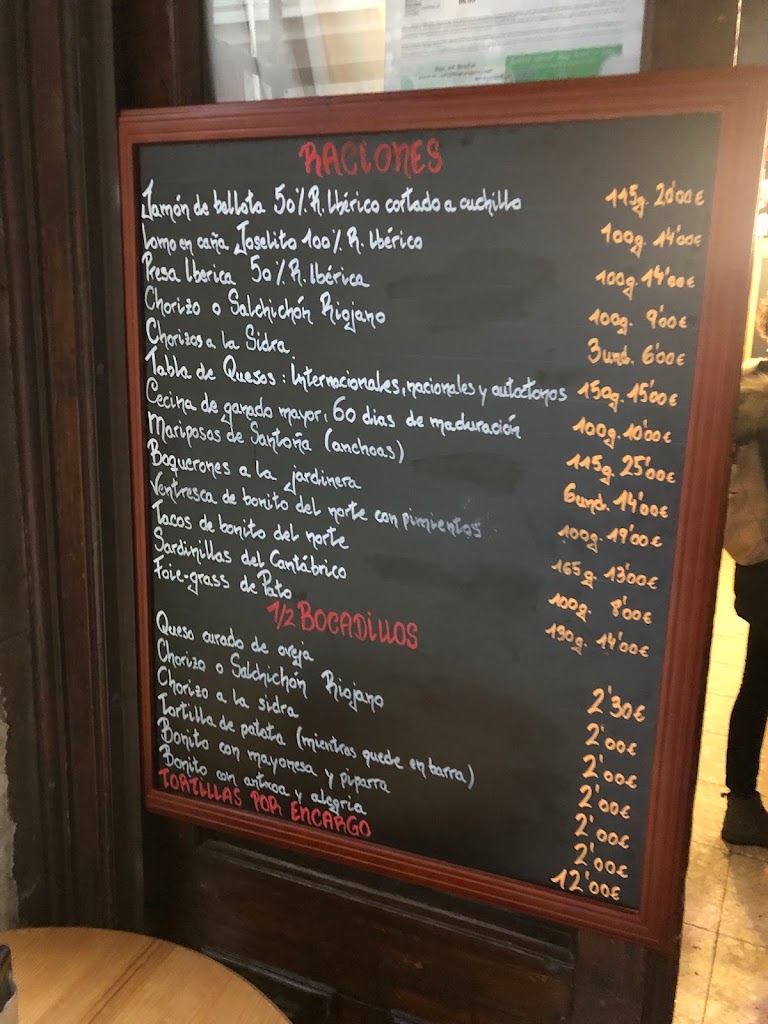 RACIONES
Jamón de bellota 50% R. Ibérico cortado a cuchillo 115g. 20'00€
Lomo en caña Joselito 100% R. Ibérico 100g. 14'00€
Presa Iberica 50% R. Ibérica 100g. 14'00€
Chorizo o Salchichón Riojano 100g. 9'00€
Chorizos a la Sidra 3und. 6'00€
Tabla de Quesos: Internacionales, nacionales y autoctonos 150g. 15'00€
Cecina de ganado mayor, 60 dias de maduración 100g. 10'00€
Mariposas de Santoña (anchoas) 115g. 25'00€
Boquerones a la jardinera 6und. 14'00€
Ventresca de bonito del norte con pimientos 100g. 19'00€
Tacos de bonito del norte 165g. 13'00€
Sardinillas del Cantábrico 100g. 8'00€
Foie-grass de Pato 130g. 14'00€
1/2 BOCADILLOS
Queso curado de oveja 2'30€
Chorizo o Salchichón Riojano 2'00€
Chorizo a la sidra 2'00€
Tortilla de patata (mientras quede en barra) 2'00€
Bonito con mayonesa y piparra 2'00€
Bonito con antxoa y alegria 2'00€
TORTILLAS POR ENCARGO 12'00€